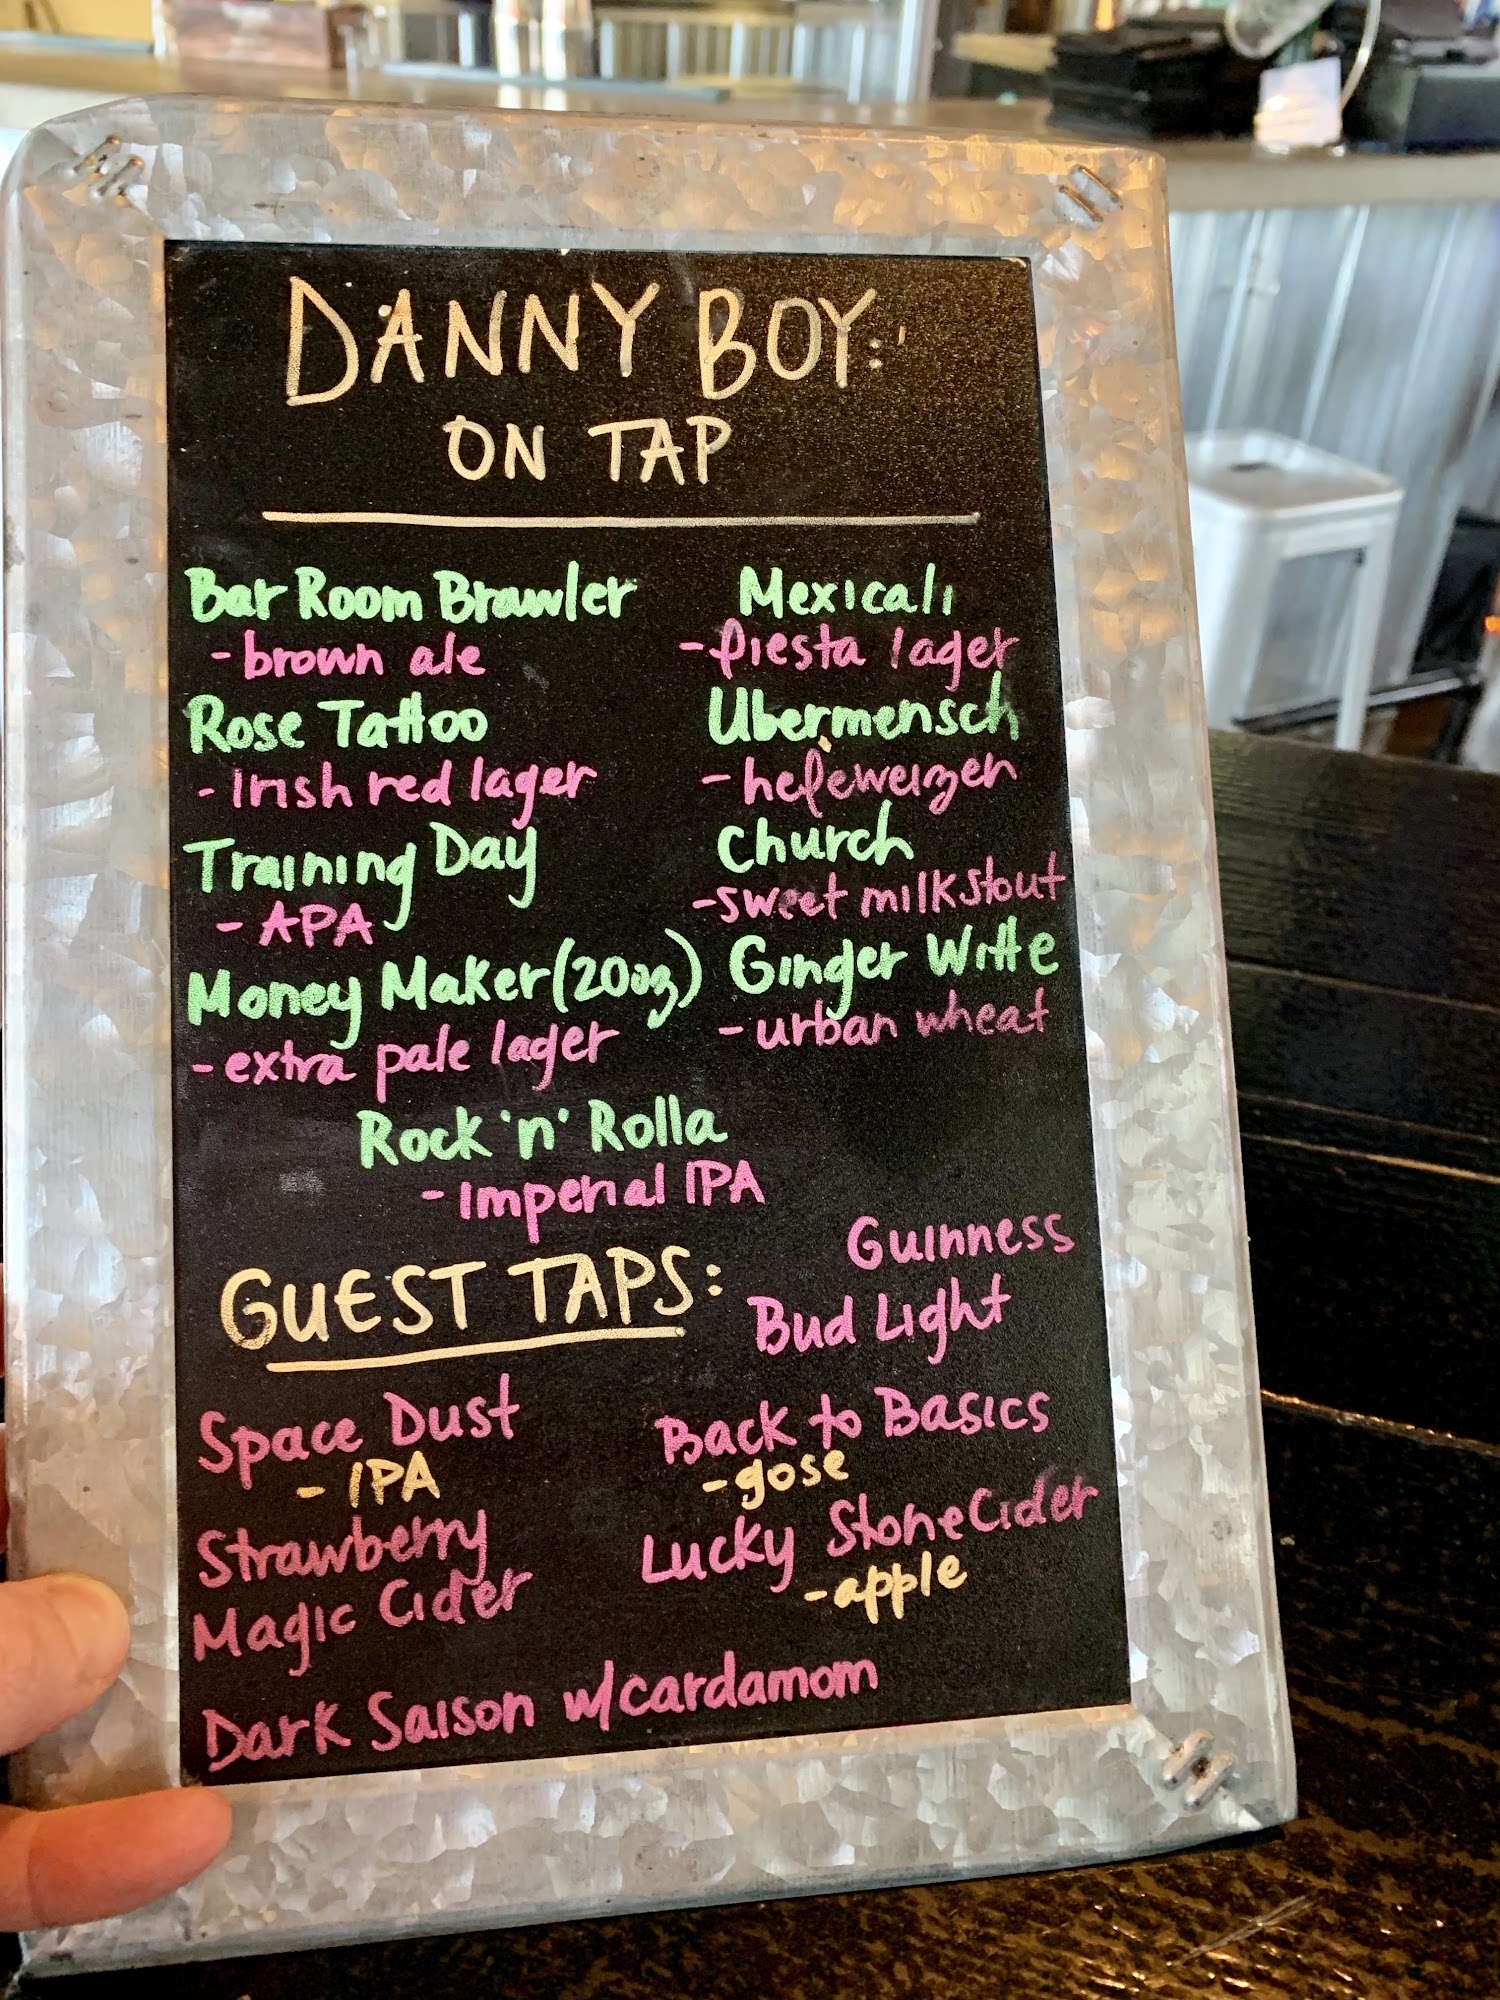 DANNY BOY:
ON TAP
Bar Room Brawler
- brown ale
Rose Tattoo
- Irish red lager
Training Day
- APA
Money Maker (20oz)
- extra pale lager
Mexicali
- fiesta lager
Ubermensch
- hefeweizen
Church
- sweet milk stout
Ginger Witte
- urban wheat
Rock 'n' Rolla
- Imperial IPA
GUEST TAPS:
Guinness
Bud Light
Space Dust
- IPA
Strawberry
Magic Cider
Back to Basics
- gose
Lucky Stone Cider
- apple
Dark Saison w/cardamom